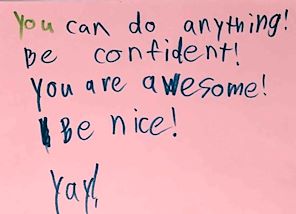 You can do anything!
Be confident!
You are awesome!
Be nice!
Yay!